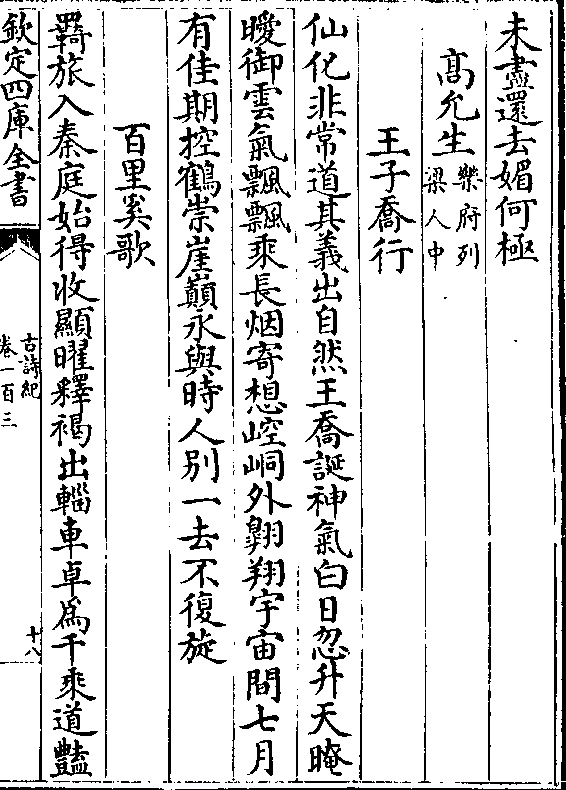 未盡還去媚何極
高允生樂府列梁人中
王子喬行
仙化非常道其義出自然王喬誕神氣白日忽升天晻
曖御雲氣飄飄乘長烟寄想崆峒外翱翔宇宙間七月
有佳期控鶴崇崖巔永與時人别一去不復旋
百里奚歌
羇旅入秦庭始得收顯曜釋褐出輜車卓為千乘道豔
欽定四庫全書
古詩紀
卷一百三
十八